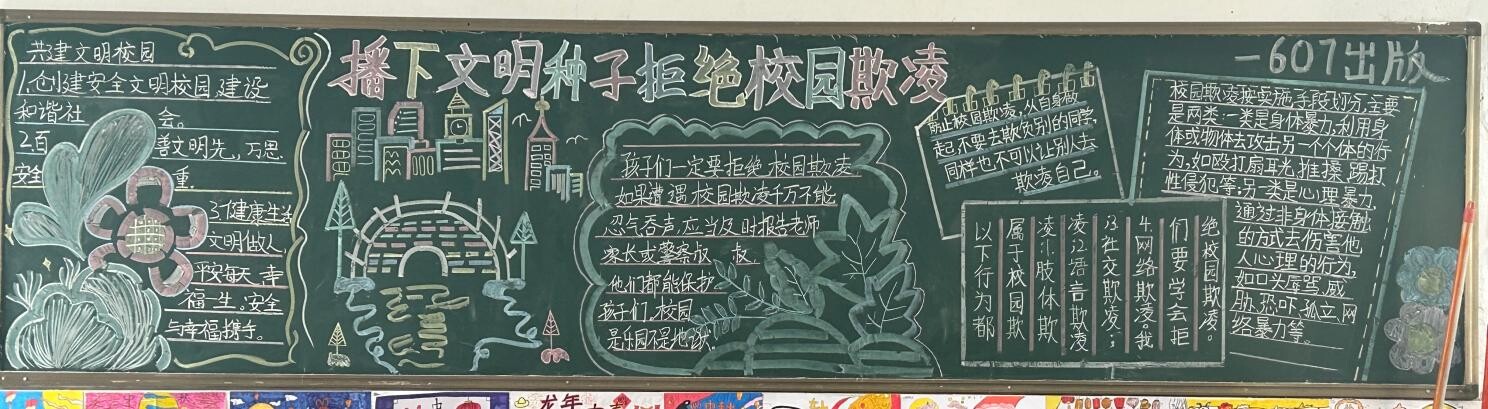 播下文明种子拒绝校园欺凌
一607出版
共建文明校园
1.创建安全文明校园,建设
和谐社 会。
2.百 善文明先,万思
安全 重
3.健康生活
文明做人
平安每天,幸
福一生。安全
与幸福携手。
孩子们一定要拒绝校园欺凌
如果遭遇校园欺凌千万不能
忍气吞声,应当及时报告老师
家长或警察叔 叔
他们都能保护
孩子们,校园
是乐园不是地狱
防止校园欺凌,从自身做
起,不要去欺负别的同学,
同样也不可以让别人去
欺凌自己。
以下行为都
属于校园欺
凌:1、肢体欺
凌;2、语言欺凌
;3、社交欺凌;
4、网络欺凌。我
们要学会拒
绝校园欺凌。
校园欺凌按实施手段划分,主要
是两类:一类是身体暴力,利用身
体或物体去攻击另一个个体的行
为,如殴打扇耳光、推搡、踢打
性侵犯等;另一类是心理暴力,
通过非身体接触
的方式去伤害他
人心理的行为,
如口头辱骂、威
胁、恐吓、孤立、网
络暴力等。
龙年